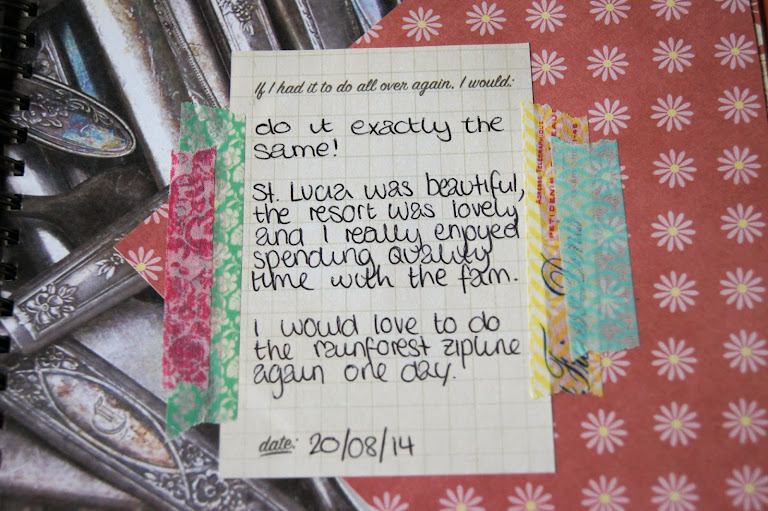 If I had it to do all over again, I would:
do it exactly the
same!
St. Lucia was beautiful,
the resort was lovely
and I really enjoyed
spending quality
time with the fam.
I would love to do
the rainforest zipline
again one day.
date: 20/08/14